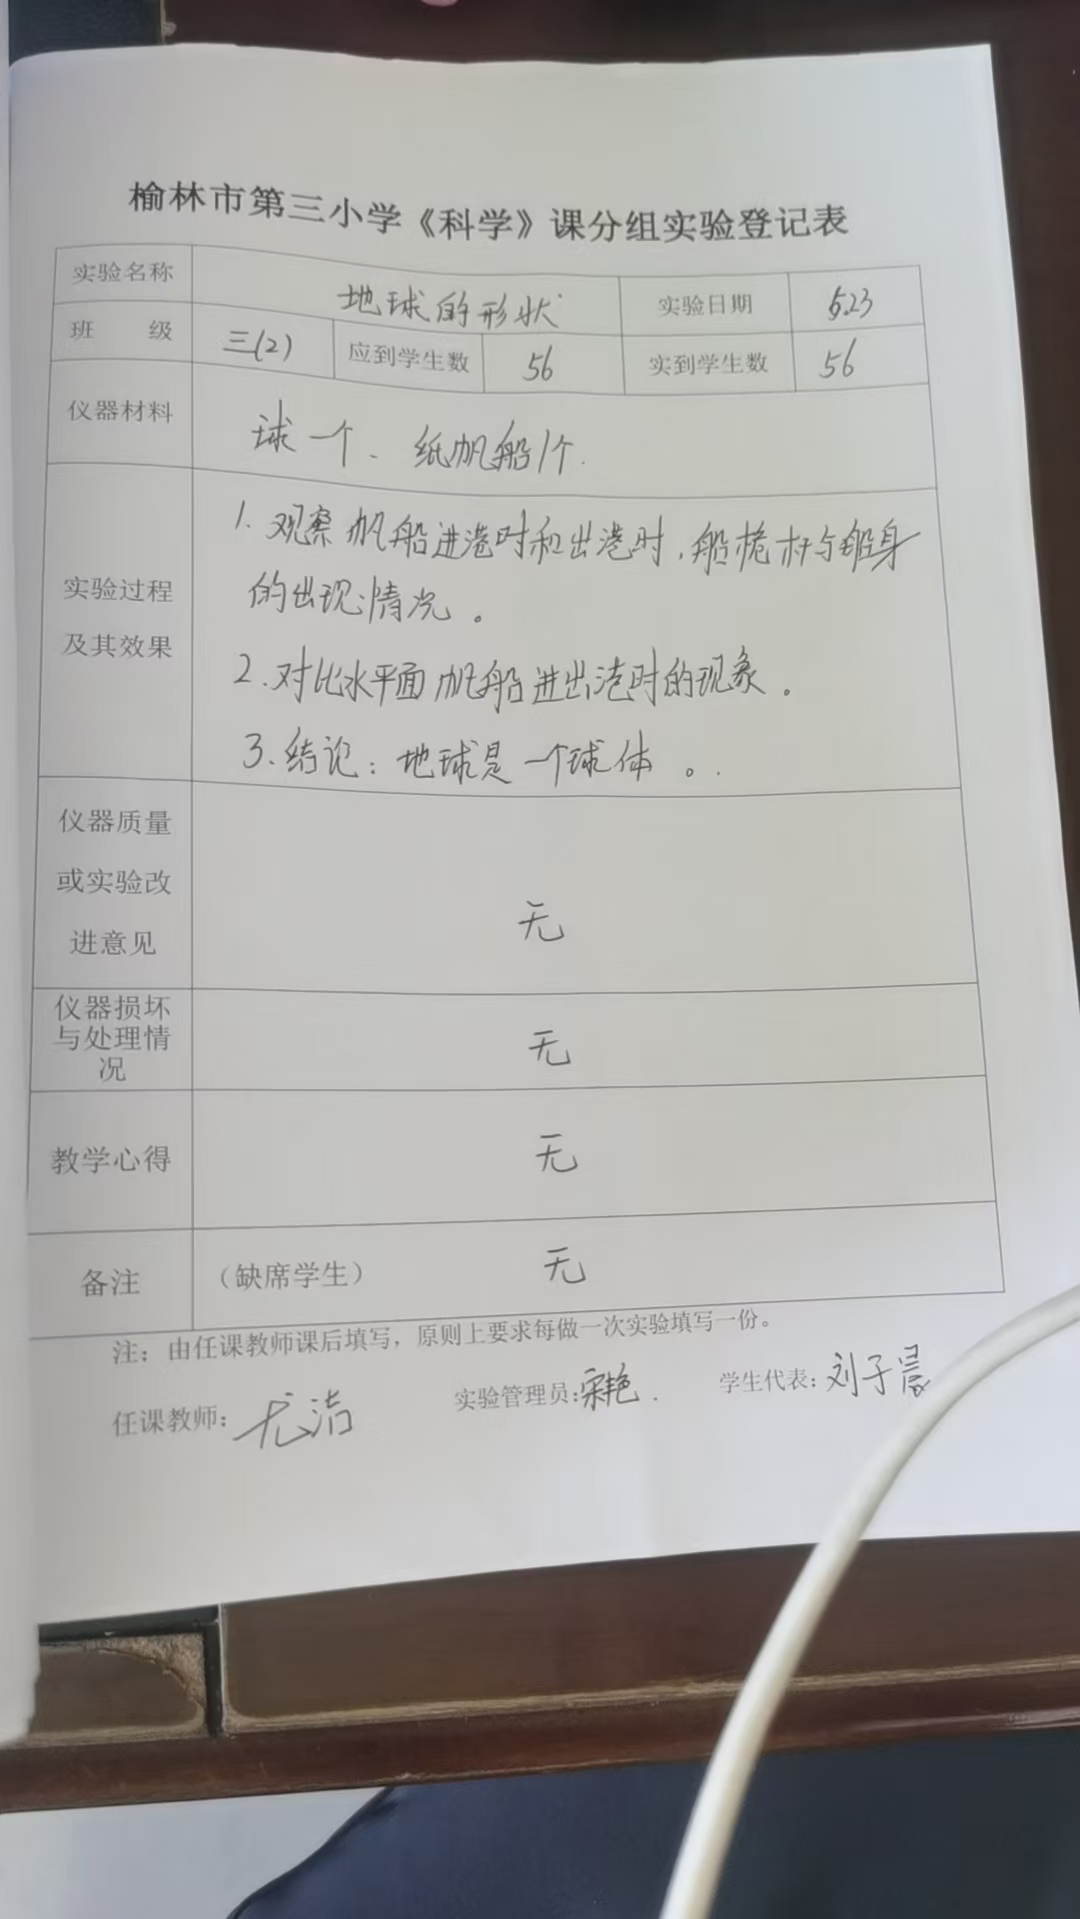 榆林市第三小学《科学》课分组实验登记表
实验名称 地球的形状 实验日期 5.23
班 级 三(2) 应到学生数 56 实到学生数 56
仪器材料 球一个、纸帆船1个.
实验过程及其效果
1. 观察帆船进港时和出港时,船桅杆与船身
的出现情况。
2. 对比水平面帆船进出港时的现象。
3. 结论:地球是一个球体。
仪器质量
或实验改
进意见
无
仪器损坏
与处理情
况
无
教学心得 无
备注 (缺席学生) 无
注:由任课教师课后填写,原则上要求每做一次实验填写一份。
任课教师: 尤洁 实验管理员: 宋艳. 学生代表: 刘子晨